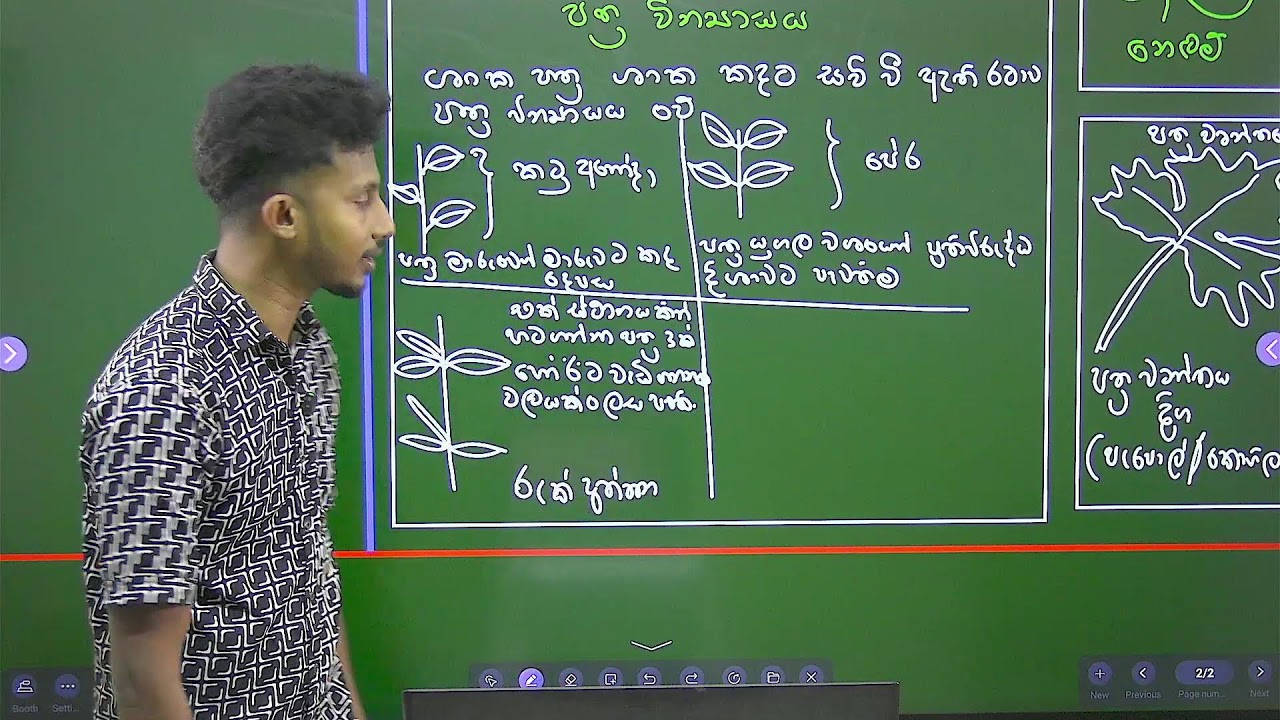 පත්‍ර වින්‍යාසය
ශාක පත්‍ර ශාක කඳට සවි වී ඇති රටාව
පත්‍ර වින්‍යාසය වේ
කටු අනෝදා
පත්‍ර මාරුවෙන් මාරුවට කඳ
දෙපස
පේර
පත්‍ර යුගල වශයෙන් ප්‍රතිවිරුද්ධ
දිශාවට පැවතීම
එක් ස්ථානයකින්
හටගන්නා පත්‍ර 3ක්
හෝ ඊට වැඩි ගණන
වලයක් ලෙස පැති.
රුක් අත්තනා
නෙළුම්
පත්‍ර වෘන්තය
පත්‍ර වෘන්තය
දිග
(පැපොල්/කොහිල
Booth
Setti...
New
Previous
2/2
Page num...
Next